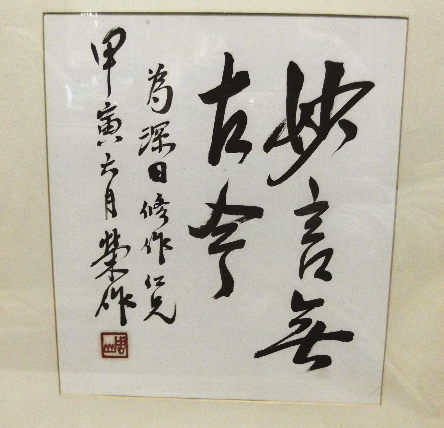 妙言無
古今
為深日修作仁兄
甲寅六月榮作